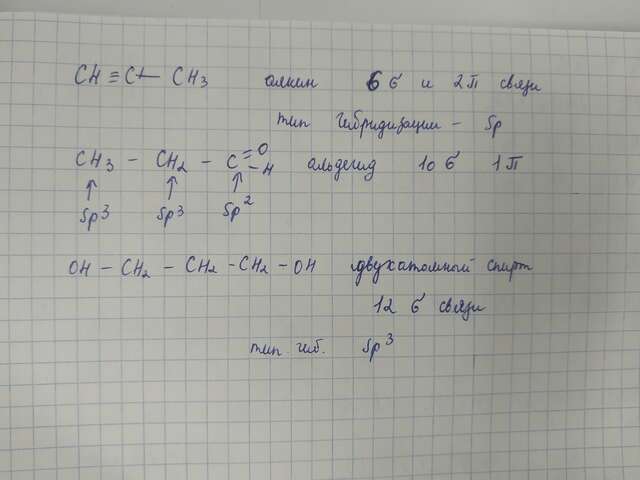 CH ≡ C — CH3 алкин 6 σ и 2 π связи
тип гибридизации – Sp
CH3 – CH2 – C =O –H альдегид 10 σ 1 π
↑ ↑ ↑
Sp3 Sp3 Sp2
OH – CH2 – CH2 – CH2 – OH двухатомный спирт
12 σ связи
тип гиб. Sp3